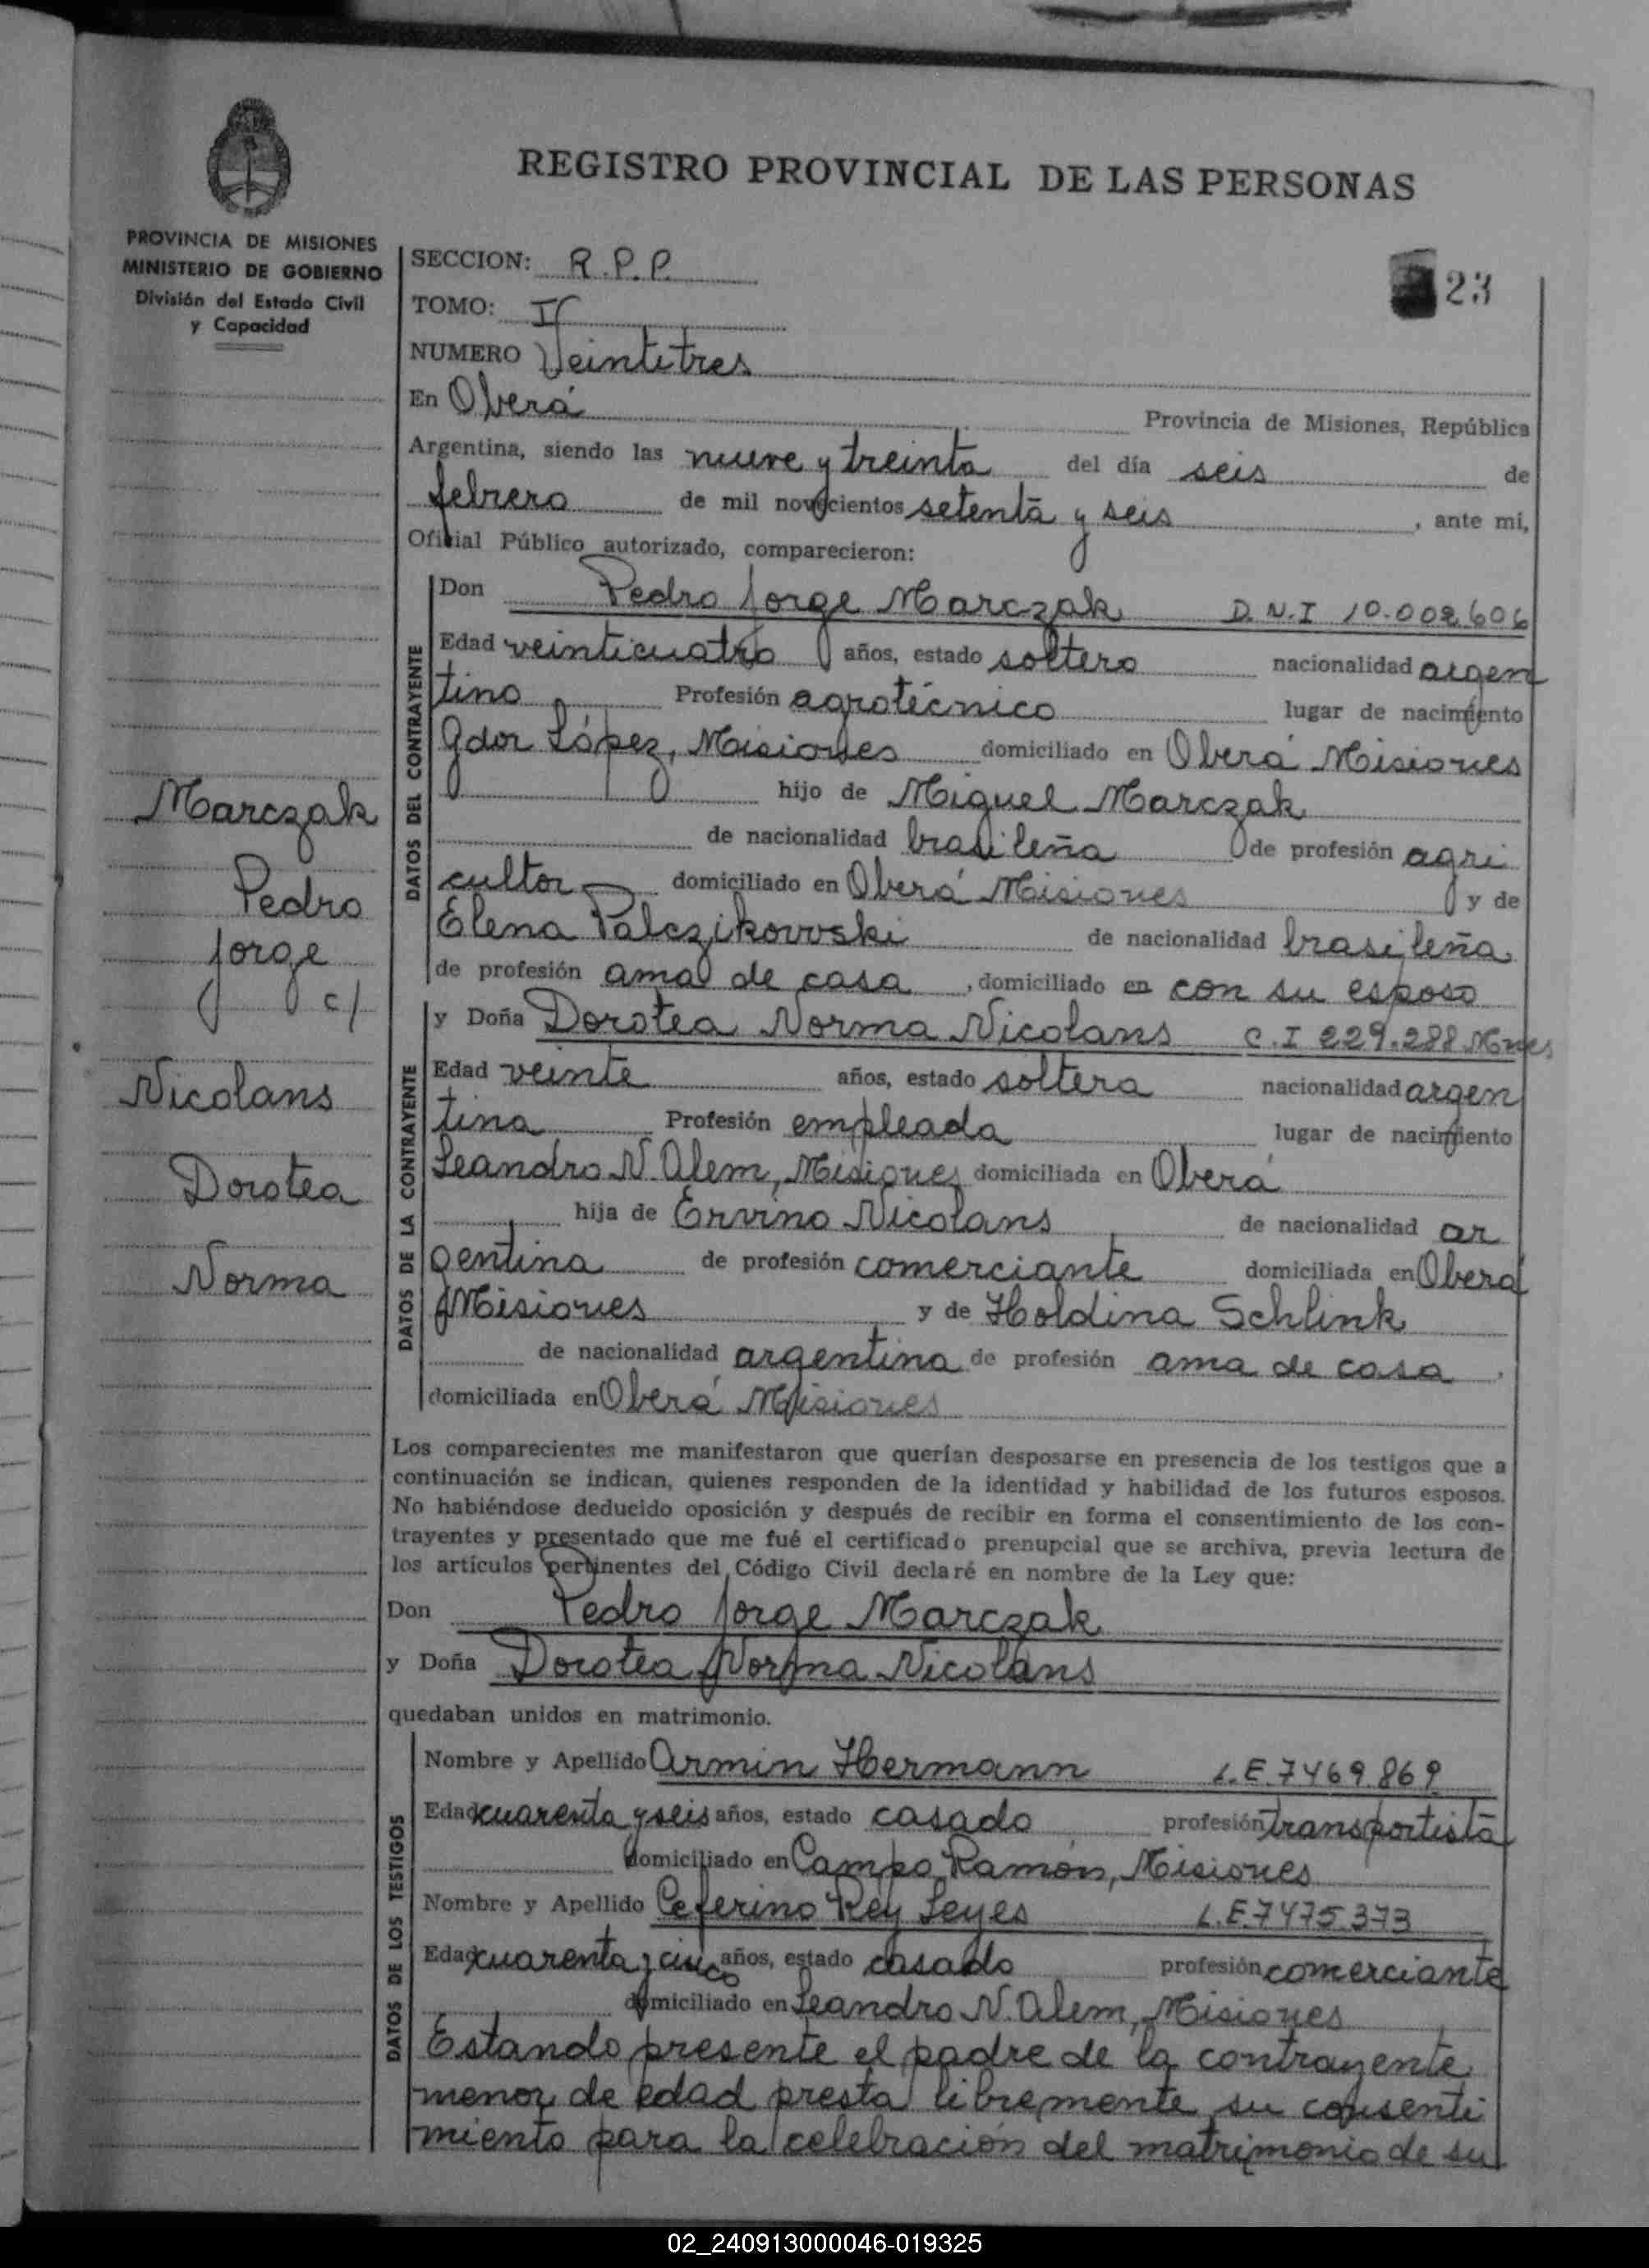 REGISTRO PROVINCIAL DE LAS PERSONAS
PROVINCIA DE MISIONES
MINISTERIO DE GOBIERNO
División del Estado Civil
y Capacidad
23
SECCION: R.P.P.
TOMO: I
NUMERO Veintitres
En Oberá Provincia de Misiones, República
Argentina, siendo las nueve y treinta del día seis de
febrero de mil novecientos setenta y seis, ante mi,
Oficial Público autorizado, comparecieron:
DATOS DEL CONTRAYENTE
Don Pedro Jorge Marczak D.N.I 10.002.606
Edad veinticuatro años, estado soltero nacionalidad argen
tino Profesión agrotécnico lugar de nacimiento
Gdor López, Misiones domiciliado en Oberá Misiones
hijo de Miguel Marczak
de nacionalidad brasileña de profesión agri
cultor domiciliado en Oberá Misiones y de
Elena Palczikowski de nacionalidad brasileña
de profesión ama de casa, domiciliado en con su esposo
DATOS DE LA CONTRAYENTE
y Doña Dorotea Norma Nicolans C.I 229.288 Mnes
Edad veinte años, estado soltera nacionalidad argen
tina Profesión empleada lugar de nacimiento
Leandro N. Alem, Misiones domiciliada en Oberá
hija de Ervino Nicolans de nacionalidad ar
gentina de profesión comerciante domiciliada en Oberá
Misiones y de Holdina Schlink
de nacionalidad argentina de profesión ama de casa,
domiciliada en Oberá Misiones
Marczak
Pedro
Jorge
c/
Nicolans
Dorotea
Norma
Los comparecientes me manifestaron que querían desposarse en presencia de los testigos que a
continuación se indican, quienes responden de la identidad y habilidad de los futuros esposos.
No habiéndose deducido oposición y después de recibir en forma el consentimiento de los con-
trayentes y presentado que me fué el certificado prenupcial que se archiva, previa lectura de
los artículos pertinentes del Código Civil declaré en nombre de la Ley que:
Don Pedro Jorge Marczak
y Doña Dorotea Norma Nicolans
quedaban unidos en matrimonio.
DATOS DE LOS TESTIGOS
Nombre y Apellido Armin Hermann L.E.7469.869
Edad cuarenta y seis años, estado casado profesión transportista
domiciliado en Campo Ramón, Misiones
Nombre y Apellido Ceferino Rey Leyes L.E.7475.373
Edad cuarenta y cinco años, estado casado profesión comerciante
domiciliado en Leandro N. Alem, Misiones
Estando presente el padre de la contrayente
menor de edad presta libremente su consenti
miento para la celebración del matrimonio de su
02_240913000046-019325